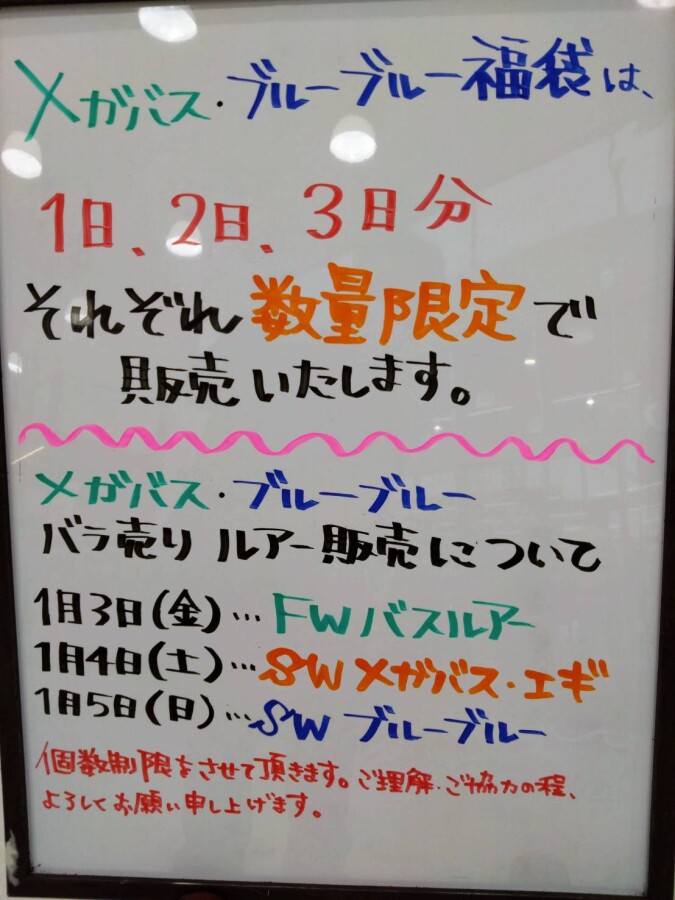 メガバス・ブルーブルー福袋は、
1日、2日、3日分
それぞれ数量限定で
販売いたします。
メガバス・ブルーブルー
バラ売り ルアー販売について
1月3日(金)…FWバスルアー
1月4日(土)…SWメガバス・エギ
1月5日(日)…SW ブルーブルー
個数制限をさせて頂きます。ご理解・ご協力の程、
よろしくお願い申し上げます。